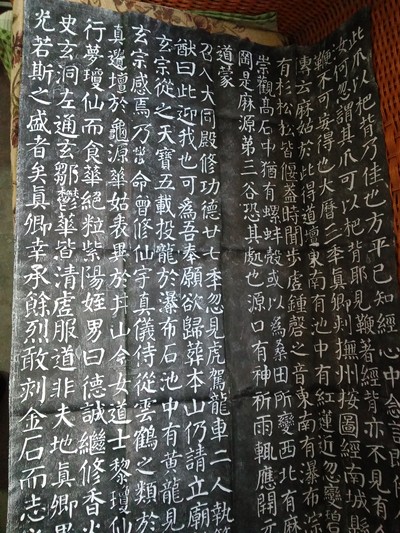 此爪以杷背乃佳也方平已知經心中念言即使人
汝何忽謂其爪可以杷背耶見鞭著經背亦不見有人
鞭不可妄得也大曆三年真卿刺撫州按圖經南城縣
傳云麻姑於此得道壇東南有池中有紅蓮近忽變碧
有杉松松皆偃蓋時聞步虛鍾磬之音東南有瀑布淙
崇觀高石中猶有螺蚌殼或以為桑田所變西北有麻
岡是麻源第三谷恐其處也源口有神祈雨輒應開元
道蒙
召入大同殿修功德廿七年忽見虎駕龍車二人執節
猷曰此迎我也可為吾奏願欲歸葬本山仍請立廟
玄宗從之天寶五載投龍於瀑布石池中有黃龍見
玄宗感焉乃命曾修仙宇真儀侍從雲鶴之類於
真遺壇於龜源華姑表異於井山今女道士黎瓊仙
行夢瓊仙而食華絕粒紫陽姪男曰德誠繼修香火
史玄洞左通玄鄒鬱華皆清虛服道非夫地真卿
光若斯之盛者矣真卿幸承餘烈敢刻金石而志之